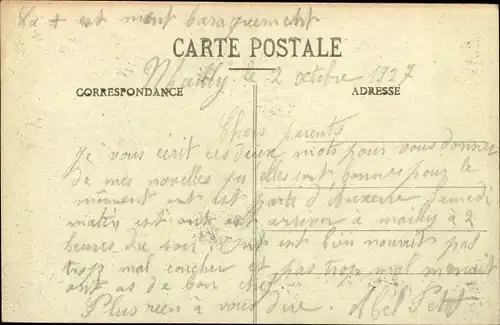 La + est mont baraquement
CARTE POSTALE
Mailly le 2 octobre 1927
CORRESPONDANCE
ADRESSE
Chers parents
Je vous écrit ces deux mots pour vous donner
de mes novelles qu elles sont bonnes pour le
moment ont est partie d'Auxerre Samedi
maten est ont est arriver à mailly à 2
heures du soir ont est bon nourit pas
trop mal coucher et pas trop mal menait
ont as de bon chef
Plus rien à vous dire. Abel Petit